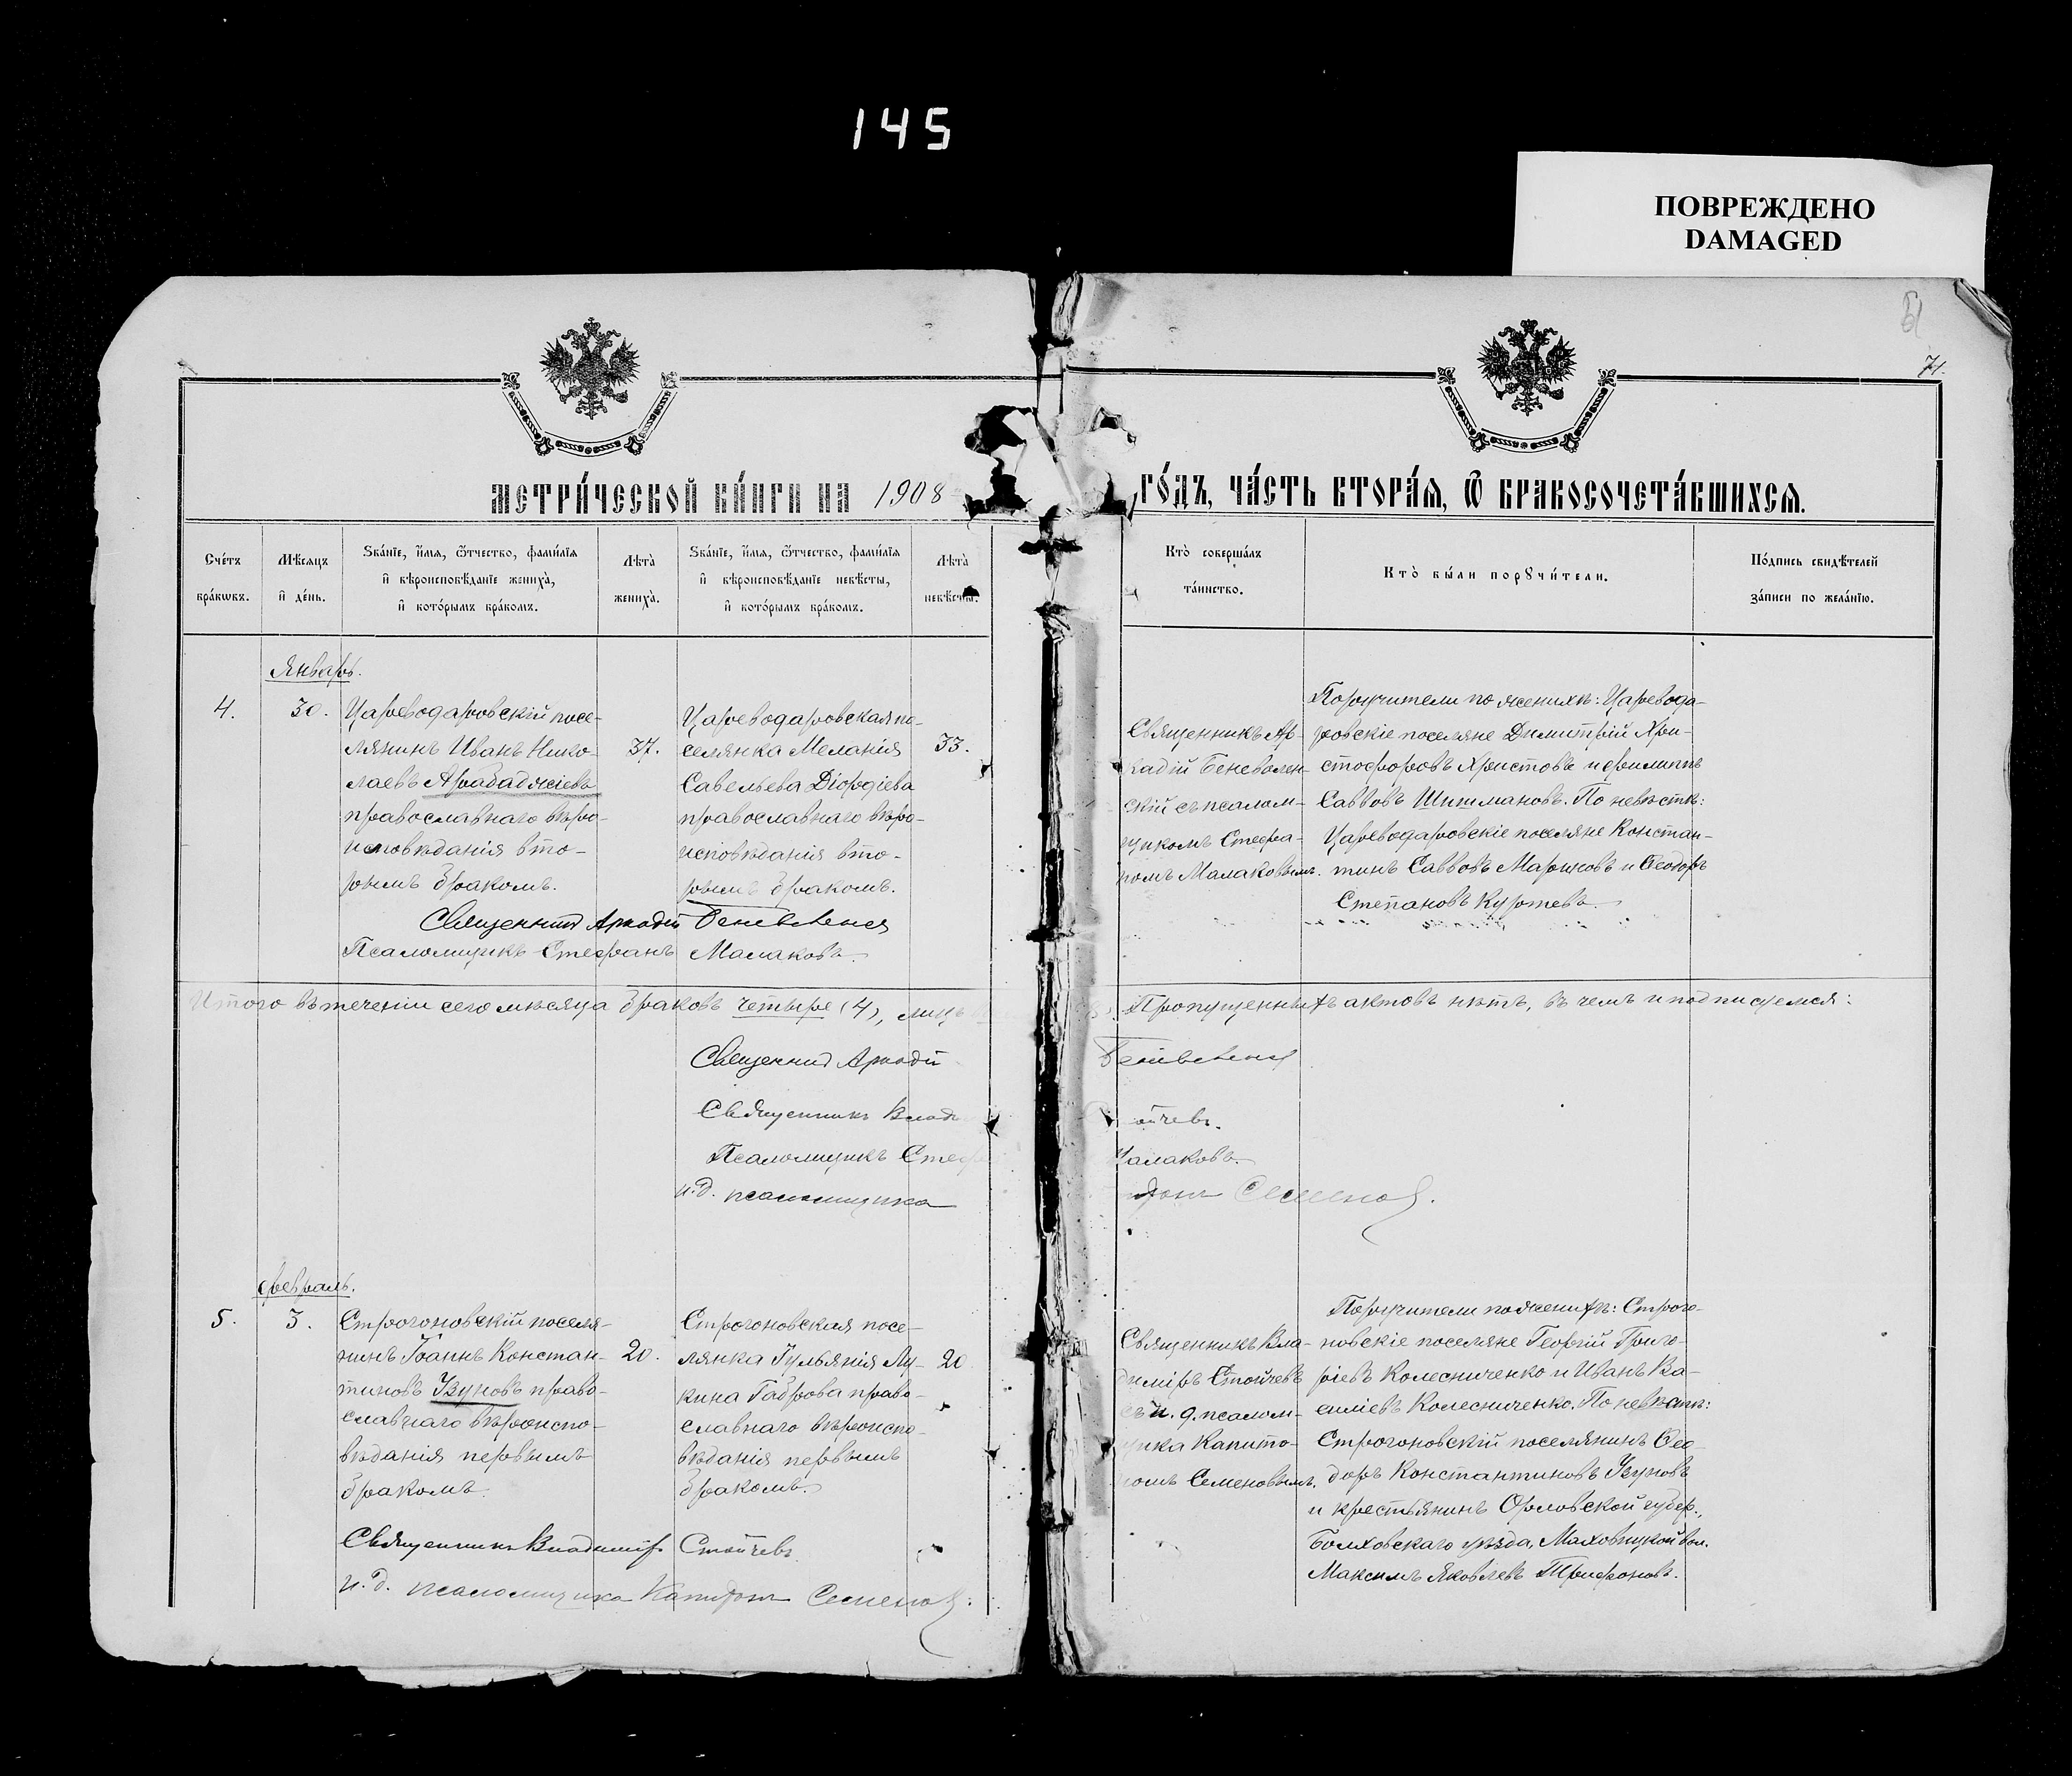 145
ПОВРЕЖДЕНО
DAMAGED
71.
МЕТРИ́ЧЕСКОЙ КНИ́ГИ НА 1908
ГО́ДЪ, ЧА́СТЬ ВТОРА́Я, Ѿ БРАКОСОЧЕТА́ВШИХСЯ.
Сче́тъ
бра́кѡвъ.
Мѣ́сяцъ
и҆ де́нь.
Ѕва́нїе, и҆́мя, ѻ҆́тчество, фами́лїя
и҆ вѣроисповѣ́данїе жениха̀,
и҆ кото́рымъ бра́комъ.
Лѣта̀
жениха̀.
Ѕва́нїе, и҆́мя, ѻ҆́тчество, фами́лїя
и҆ вѣроисповѣ́данїе невѣ́сты,
и҆ кото́рымъ бра́комъ.
Лѣта̀
невѣ́сты.
Кто̀ соверша́лъ
та́инство.
Кто̀ бы́ли порꙋчи́тели.
По́дпись свидѣ́телей
за́писи по жела́нїю.
Январь.
4.
30.
Цареводаровскій посе-
лянинъ Иванъ Нико-
лаевъ Арабаджіевъ
православнаго вѣро-
исповѣданія вто-
рымъ бракомъ.
37.
Цареводаровская по-
селянка Меланія
Савельева Діордіева
православнаго вѣро-
исповѣданія вто-
рымъ бракомъ.
33.
Священникъ Ар-
кадій Беневолен-
скій съ псалом-
щикомъ Стефа-
номъ Малаковымъ.
Поручители по женихѣ: Царевода-
ровскіе поселяне Димитрій Хри-
стофоровъ Христовъ и Филиппъ
Саввовъ Шишмановъ. По невѣстѣ:
Цареводаровскіе поселяне Констан-
тинъ Саввовъ Марковъ и Ѳеодоръ
Степановъ Куртевъ.
Священникъ Аркадій
Псаломщикъ Стефанъ Малаковъ.
Итого въ теченіи сего мѣсяца браковъ четыре (4), лицъ
Пропущенныхъ актовъ нѣтъ, въ чемъ и подписуемся:
Священникъ Аркадій
Священникъ Влад
ойчевъ.
Псаломщикъ Стеф
Малаковъ.
и. д. псаломщика
Семеновъ.
Февраль.
5.
3.
Строгоновскій поселя-
нинъ Іоаннъ Констан-
тиновъ Узуновъ право-
славнаго вѣроиспо-
вѣданія первымъ
бракомъ.
20.
Строгоновская посе-
лянка Іульянія Лу-
кина Габрова право-
славнаго вѣроиспо-
вѣданія первымъ
бракомъ.
20
Священникъ Вла-
диміръ Стойчевъ
съ и. д. псалом-
щика Капито-
номъ Семеновымъ.
Поручители по женихѣ: Строго-
новскіе поселяне Георгій Григо-
ріевъ Колесниченко и Иванъ Ва-
силіевъ Колесниченко. По невѣстѣ:
Строгоновскій поселянинъ Ѳео-
доръ Константиновъ Узуновъ
и крестьянинъ Орловской губер.,
Болховскаго уѣзда, Маховицкой вол.
Максимъ Яковлевъ Трифоновъ.
Священникъ Владиміръ Стойчевъ
и. д. псаломщика Капитонъ Семеновъ.